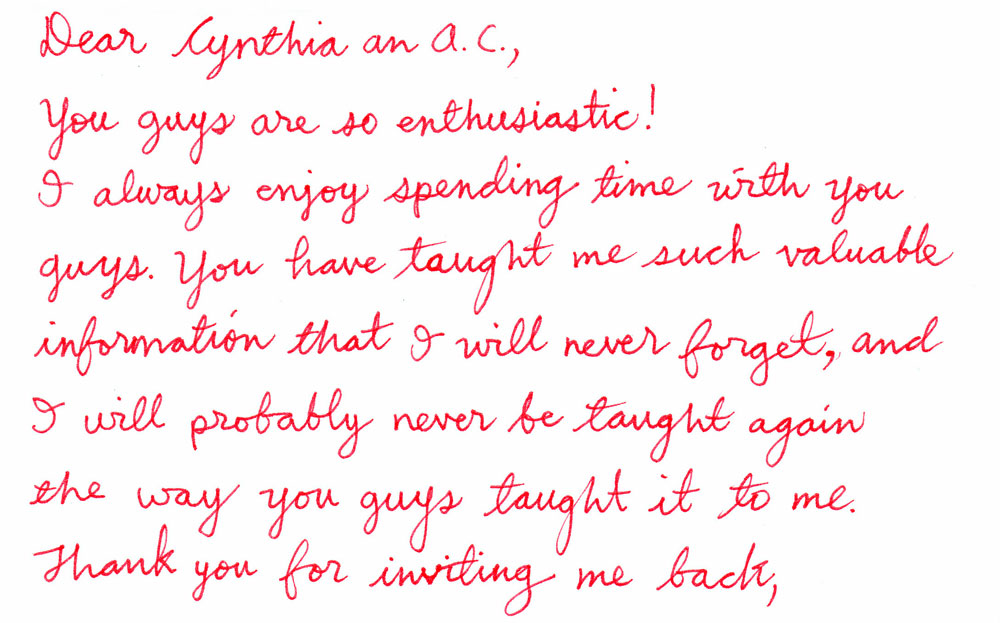 Dear Cynthia an A.C.,
You guys are so enthusiastic!
I always enjoy spending time with you
guys. You have taught me such valuable
information that I will never forget, and
I will probably never be taught again
the way you guys taught it to me.
Thank you for inviting me back,